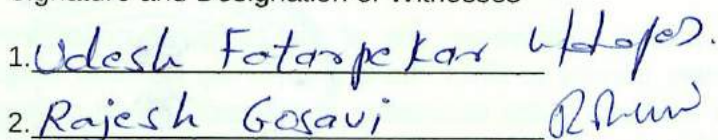 Signature and Designation of Witnesses
1. Udesh Fatarpekar
2. Rajesh Gosavi